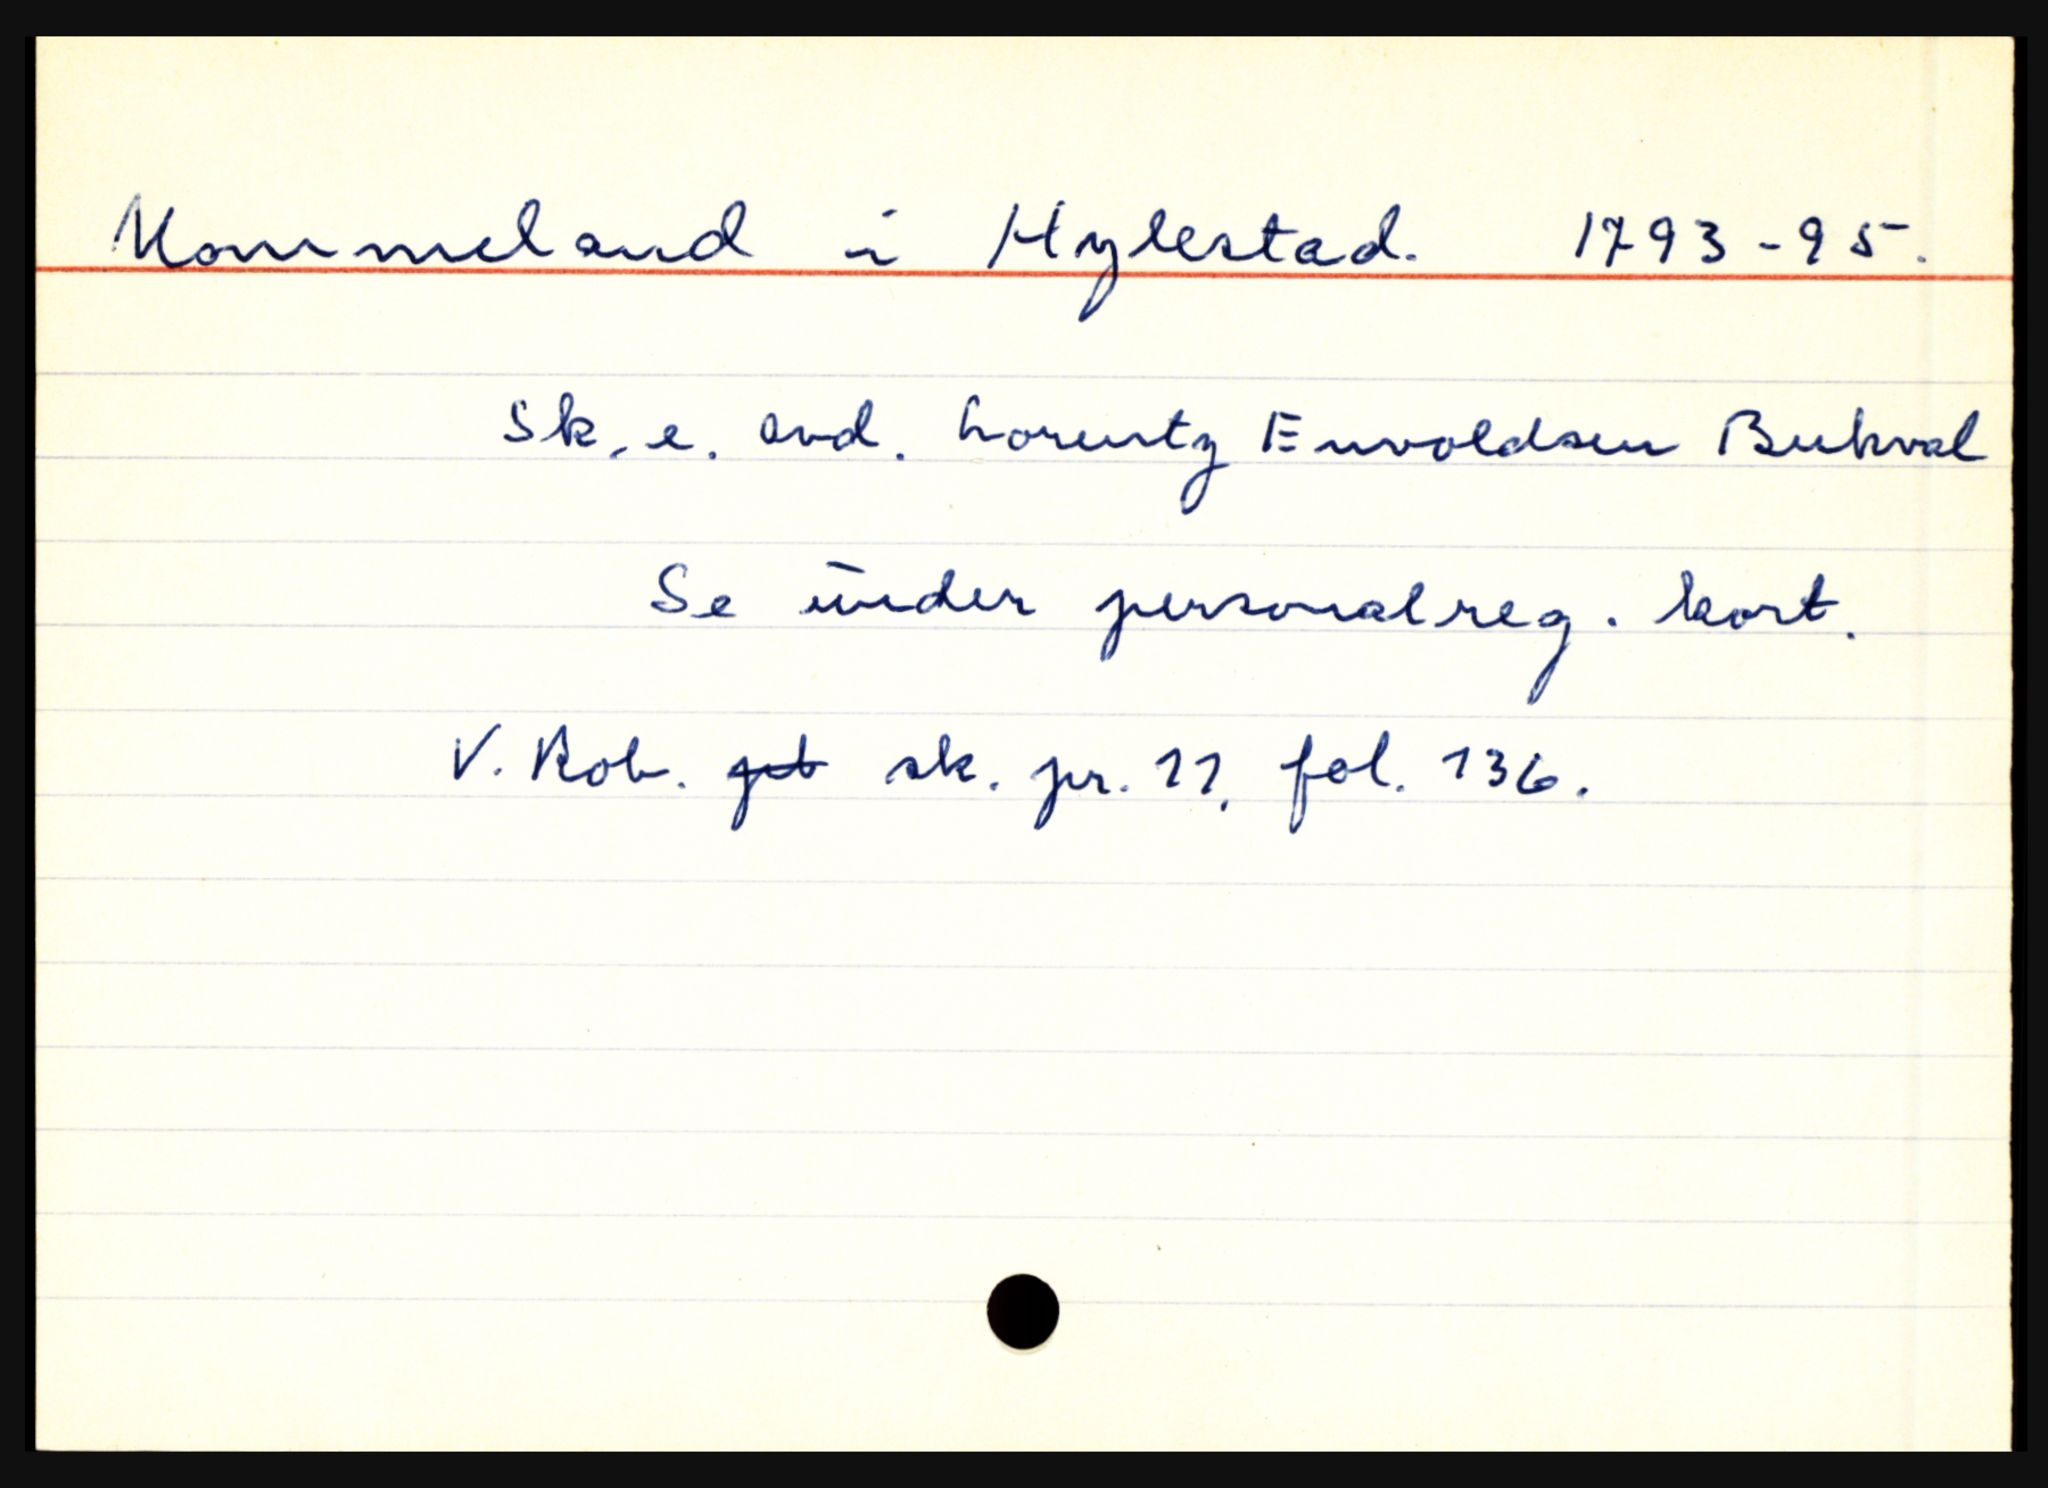 Nommeland i Hylestad. 1793-95.
Sk. e. avd. Lorentz Envoldsen Bukval
Se under personalreg. kort.
V. Rob. sk. pr. 11, fol. 136.